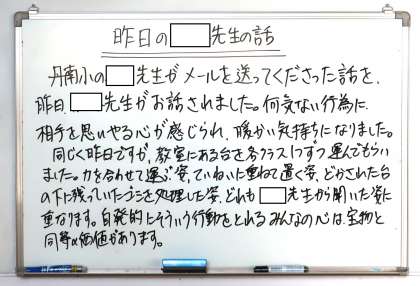 昨日の□先生の話
丹南小の□先生がメールを送ってくださった話を、
昨日、□先生がお話されました。何気ない行為に、
相手を思いやる心が感じられ、暖かい気持ちになりました。
同じく昨日ですが、教室にある台を各クラス1つずつ運んでもらい
ました。力を合わせて運ぶ姿、ていねいに重ねて置く姿、どかされた台
の下に残っていたゴミを処理した姿、どれも□先生から聞いた姿に
重なります。自発的にそういう行動をとれるみんなの心は、宝物と
同等の価値があります。